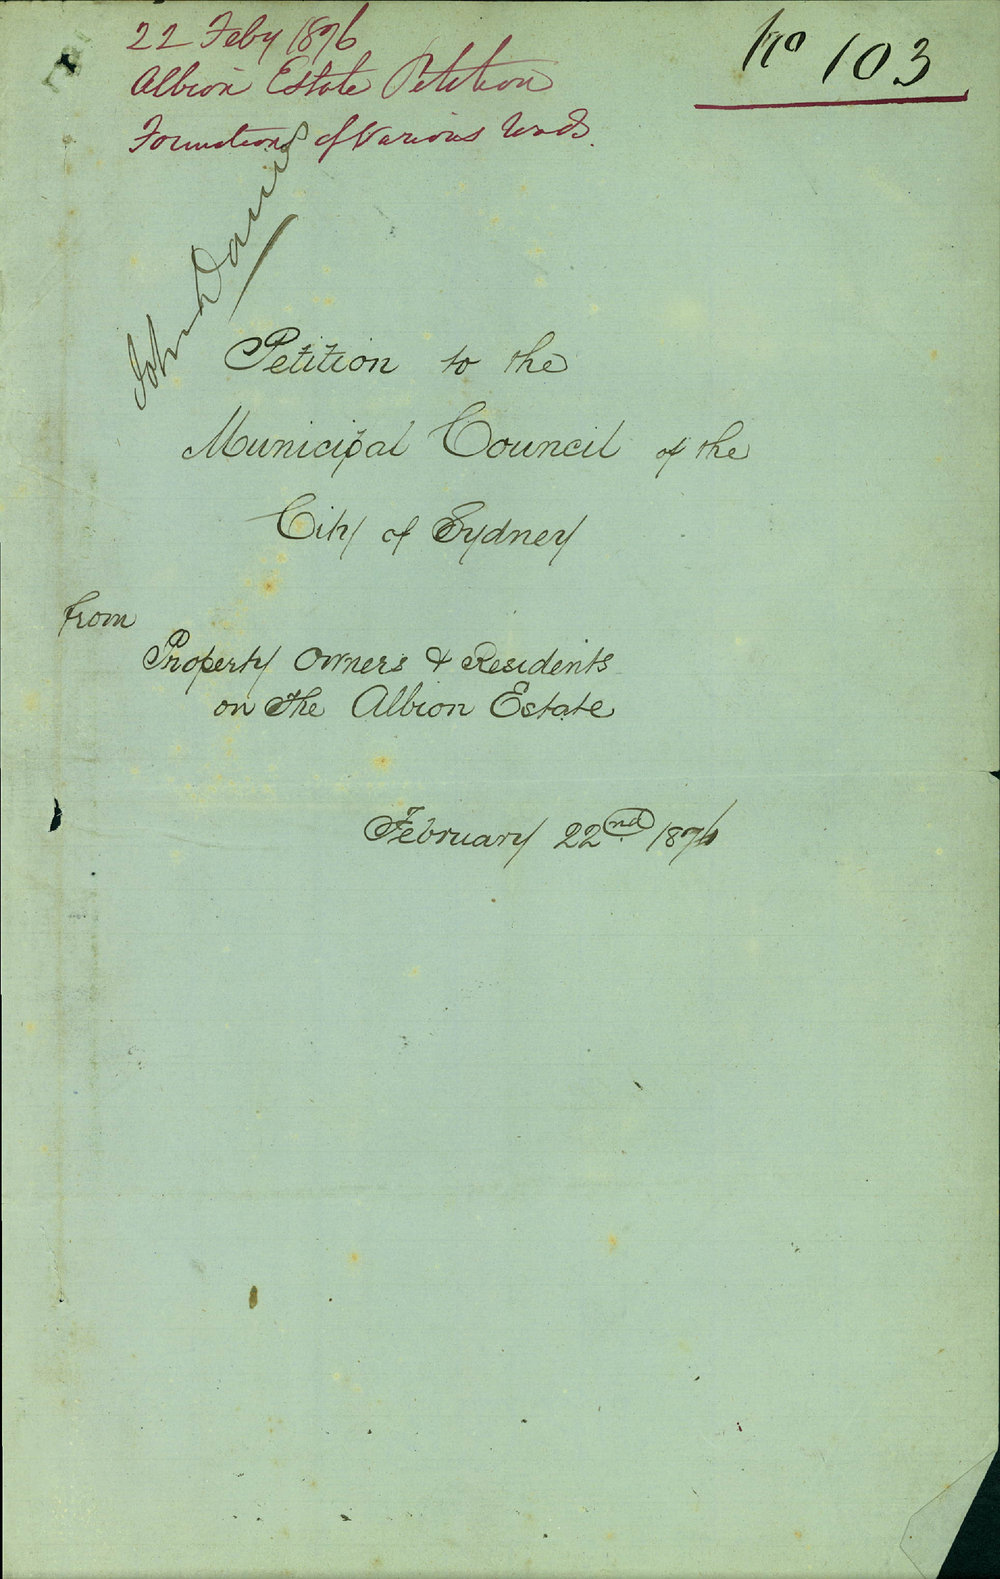 22 Feby 1876
No 103
Albion Estate Petition
Formation of Various
John Davies
Petition to the
Municipal Council of the
City of Sydney
from
Property Owners & Residents
on the Albion Estate
February 22nd 1876